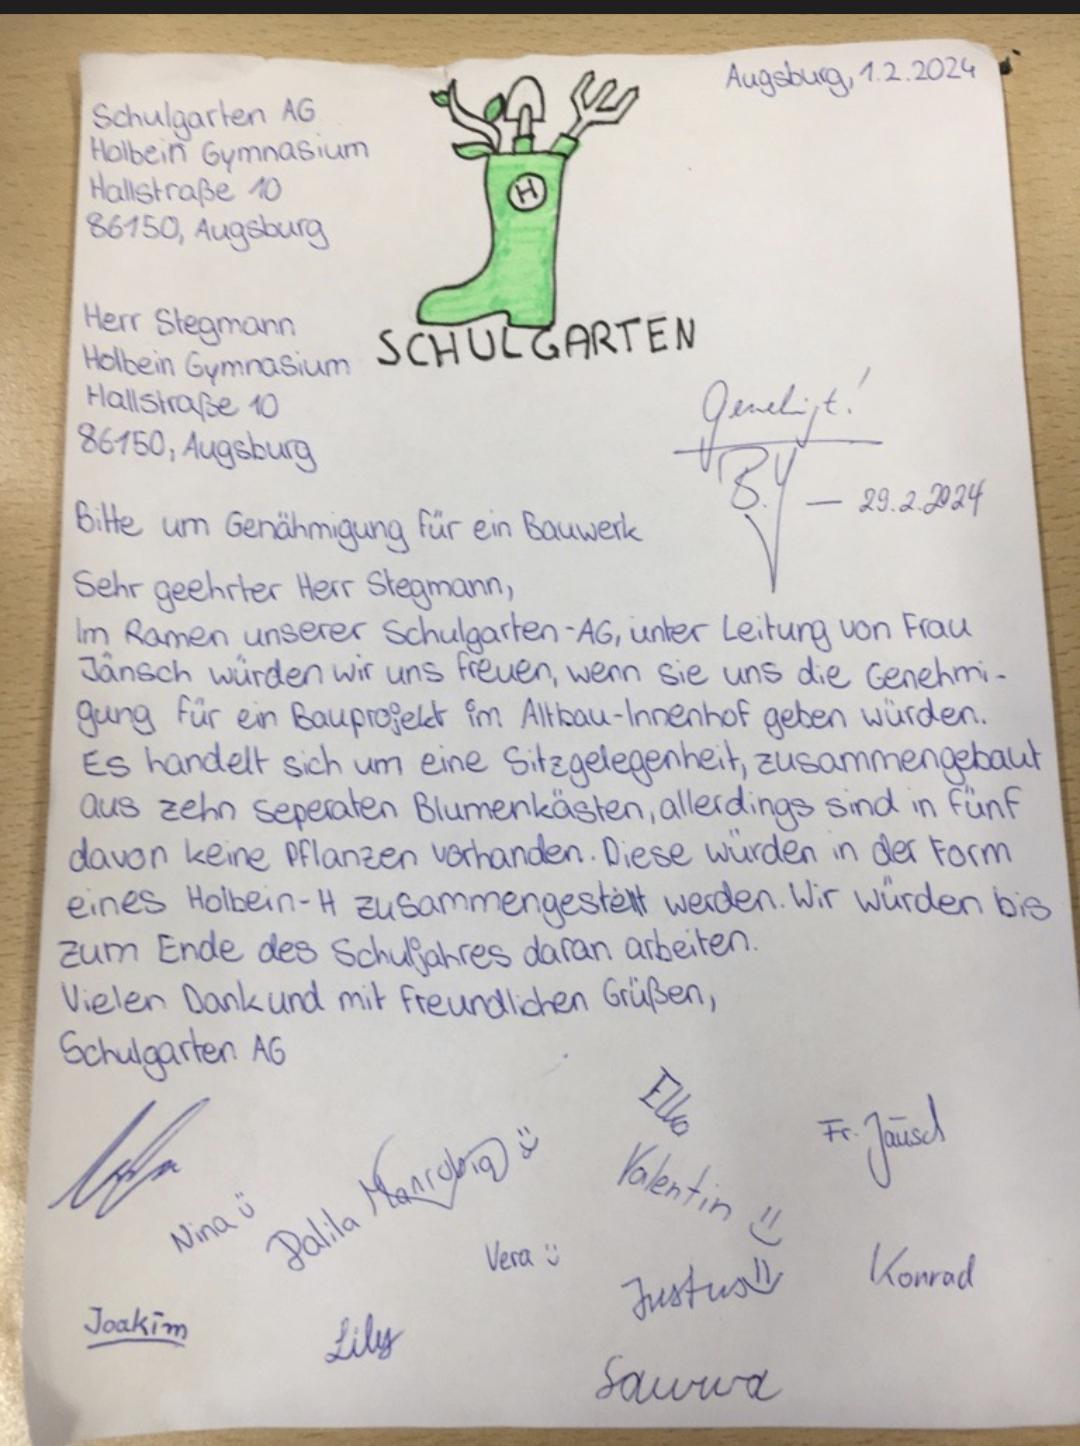 Augsburg, 1.2.2024
Schulgarten AG
Holbein Gymnasium
Hallstraße 10
86150, Augsburg
H
SCHULGARTEN
Herr Stegmann
Holbein Gymnasium
Hallstraße 10
86150, Augsburg
Genehmigt!
29.2.2024
Bitte um Genähmigung für ein Bauwerk
Sehr geehrter Herr Stegmann,
Im Ramen unserer Schulgarten-AG, unter Leitung von Frau
Jänsch würden wir uns freuen, wenn sie uns die Genehmi-
gung für ein Bauprojekt im Altbau-Innenhof geben würden.
Es handelt sich um eine Sitzgelegenheit, zusammengebaut
aus zehn seperaten Blumenkästen, allerdings sind in fünf
davon keine Pflanzen vorhanden. Diese würden in der Form
eines Holbein-H zusammengestellt werden. Wir würden bis
zum Ende des Schuljahres daran arbeiten.
Vielen Dank und mit freundlichen Grüßen,
Schulgarten AG
Fr. Jänsch
Valentin
Nina
Dalila
Vera
Justus
Konrad
Joakim
Lily